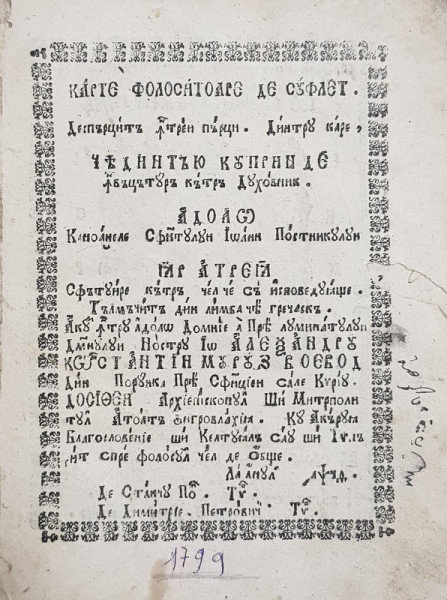 КАРТЕ ФОЛОСИТОАРЕ ДЕ СУФЛЕТ.
Деспърцитъ ꙟтреи пърци. Динтру каре,
ЧѢ ДИНТЪЮ КУПРИНДЕ
ꙟвъцътуръ кътръ Духовник.
А ДОАѠ
Каноанеле Сфѫнтулуи Іѡанн Постникулуи
ꙖР А ТРЕІА
Сфътуире кътръ чел че съ исповедуѧще.
Тълмъчитъ дин лимба чѣ гречаскъ.
Акꙋ ꙟтру адоаѡ Домніе а Прѣ луминатулуи
Домнулуи Ностру Іѡ АЛЕѮАНДРУ
КѠСТАНТІН МУРУЗ ВОЕВОД
Дин Порунка Прѣ Сфинціеи сале Куріу.
ДОСІѲЕИ Архіепископул Ши Митрополи
тул а Тоатъ Унгровлахіа. Ку а Къруѧ
Благословеніе ши Келтуѧлъ сау ши Ти҆пъ
рит спре фолосул чел де Обще.
Ла Анул ҂аѱч҃ѳ.
Де Станчу По. Ти.
Де Димитріе. Петрович. Ти.
1799